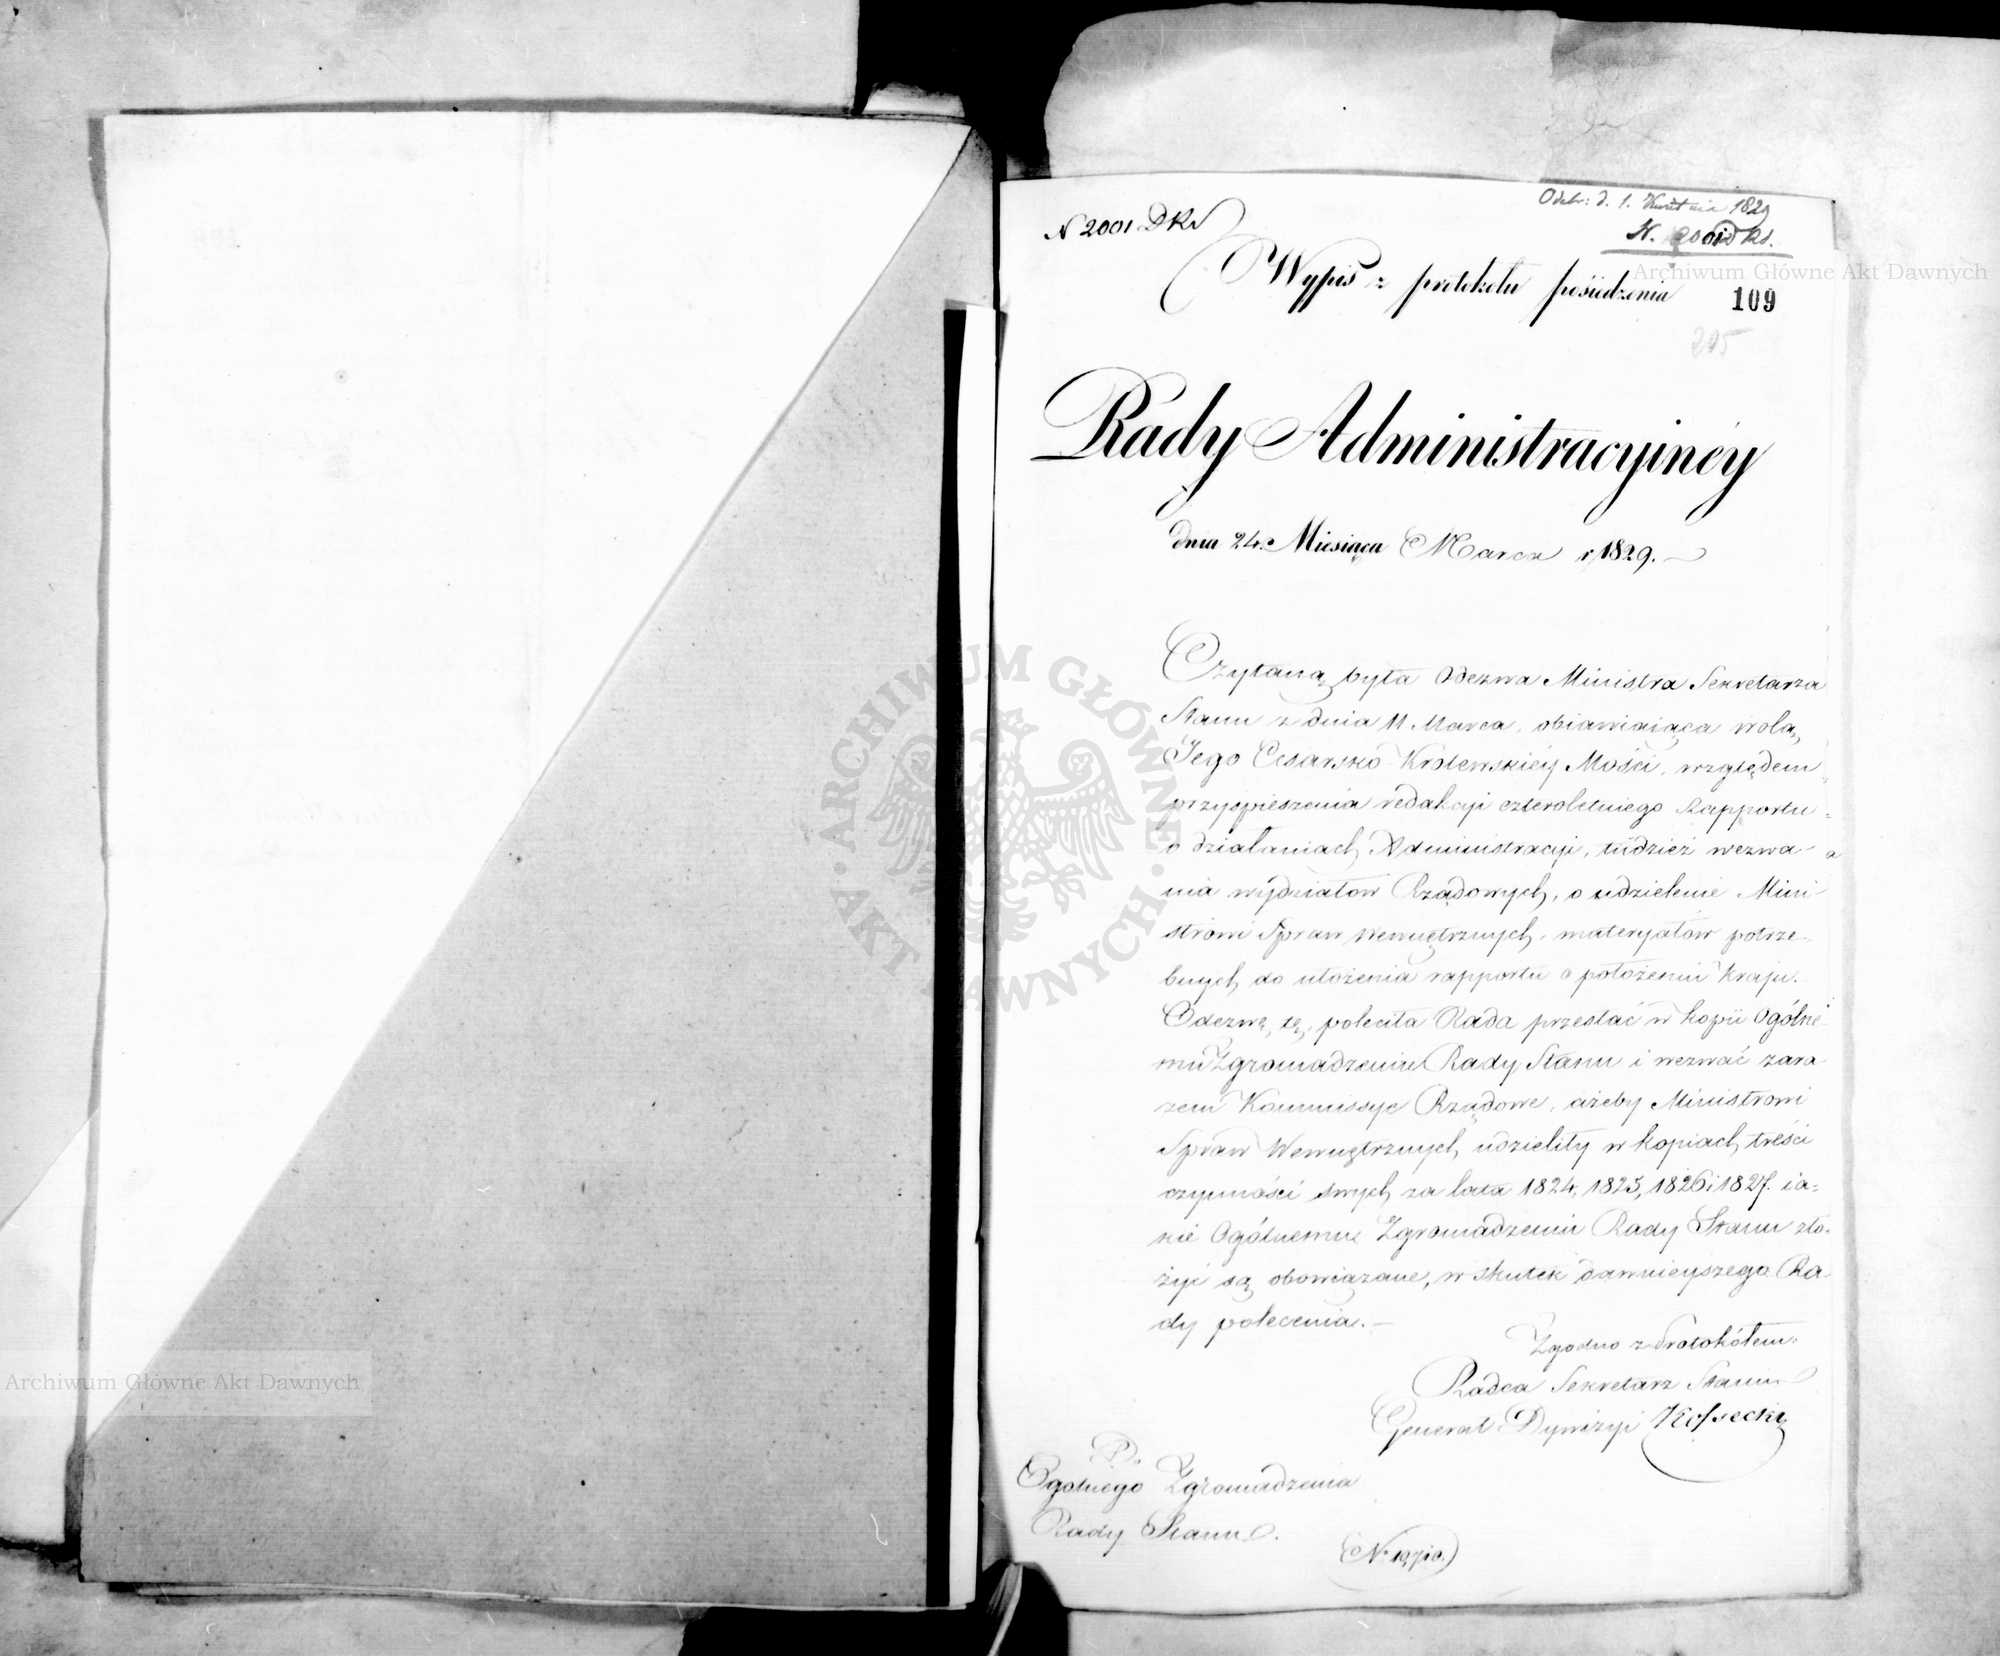 Odebr: d. 1. Kwietnia 1829
N. 2001 D Kl.
N 2001 D Kl
Wypis z protokołu posiedzenia
109
205
Rady Administracyinéy
dnia 24. Miesiąca Marca r. 1829. —
Czytaną była Odezwa Ministra Sekretarza
Stanu z dnia 11. Marca, obiawiaiąca wolą
Jego Cesarsko-Królewskiéy Mości, względem
przyspieszenia redakcyi czteroletniego Rapportu
o działaniach Administracyi, tudzież wezwa-
nia wydziałów Rządowych, o udzielenie Mini-
strowi Spraw Wewnętrznych, materyałów potrze-
bnych do ułożenia rapportu o położeniu Kraju.
Odezwę tę, poleciła Rada przesłać w kopii Ogólne-
mu Zgromadzeniu Rady Stanu i wezwać zara-
zem Kommissye Rządowe, ażeby Ministrowi
Spraw Wewnętrznych udzieliły w kopiach treści
czynności swych za lata 1824, 1825, 1826 i 1827. ia-
kie Ogólnemu Zgromadzeniu Rady Stanu zło-
żyć są obowiązane, w skutek dawnieyszego Ra-
dy polecenia. —
Zgodno z Protokółem:
Radca Sekretarz Stanu
Generał Dywizyi Kossecki
Do
Ogólnego Zgromadzenia
Rady Stanu.
(N° 10,710.)
Archiwum Główne Akt Dawnych
Archiwum Główne Akt Dawnych
ARCHIWUM GŁÓWNE AKT DAWNYCH